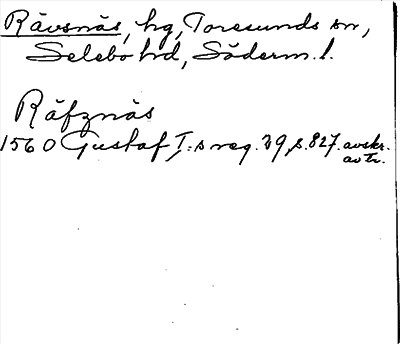 Rävsnäs, hg, Toresunds sn,
Selebo hd, Söderm. l.
Räfznäs
1560 Gustaf I:s reg. 29, s. 827. avskr.
av tr.